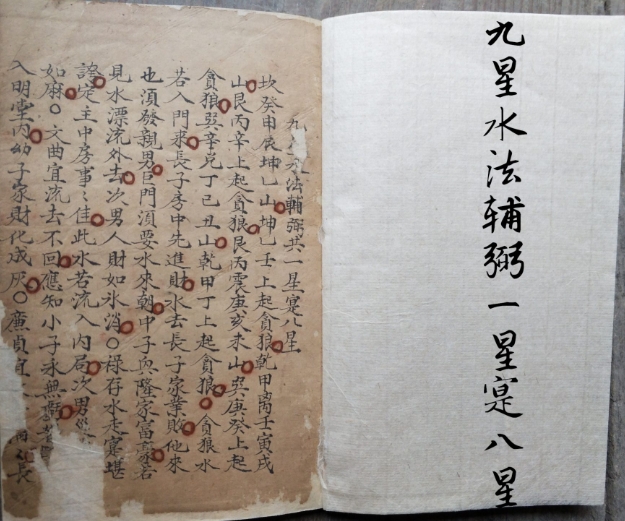 九星水法輔弼一星寔八星
九水法輔弼共一星寔八星
坎癸申辰坤乙山坤乙壬上起貪狼乾甲離壬寅戌
山艮丙辛上起貪狼艮丙震庚亥未山巽庚癸上起
貪狼巽辛兌丁巳丑山乾甲丁上起貪狼○貪狼水
若入門來長子房中先進財水去長子家業敗他來
也須發親男巨門須要水來朝中子興隆家富豪若
見水漂流外去次男人財如水消○祿存水走寔堪
誇定主中房事佳此水若流入內局次男
如麻○文曲宜流去不回應知小子永無
入明堂內幼子家財化成灰○廉貞宜長